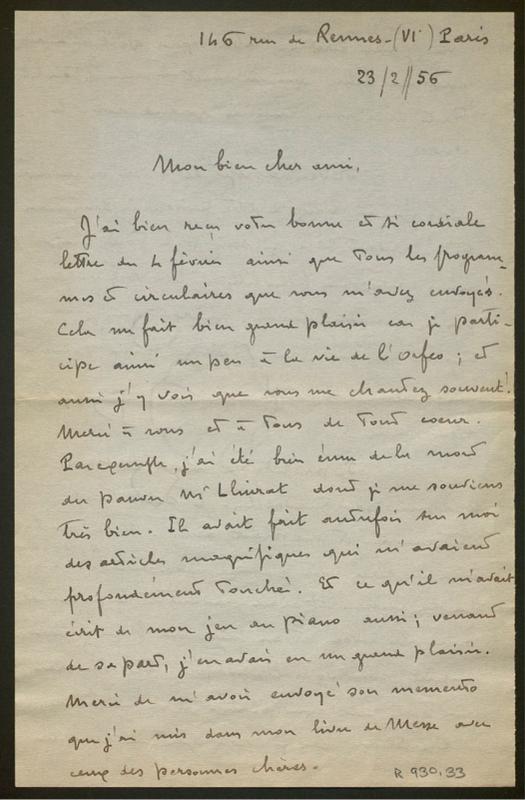 146 rue de Rennes-(VIe) Paris
23/2//56
Mon bien cher ami,
J'ai bien reçu votre bonne et si cordiale
lettre du 4 février ainsi que tous les program-
mes et circulaires que vous m'avez envoyés.
Cela me fait bien grand plaisir car je parti-
cipe ainsi un peu à la vie de l'Orfeo ; et
aussi j'y vois que vous me chantez souvent!
Merci à vous et à tous de tout coeur.
Par exemple, j'ai été bien ému de la mort
du pauvre Mr Lliurat dont je me souviens
très bien. Il avait fait autrefois sur moi
des articles magnifiques qui m'avaient
profondément touché. Et ce qu'il m'avait
écrit de mon jeu au piano aussi ; venant
de sa part, j'en avais eu un grand plaisir.
Merci de m'avoir envoyé son memento
que j'ai mis dans mon livre de Messe avec
ceux des personnes chères.
R 930,33